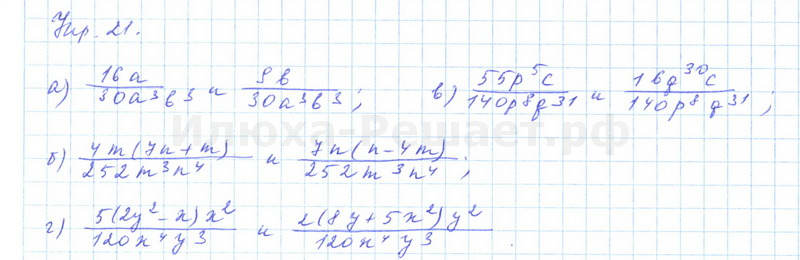 Упр. 21.
а) 16a/30a³b³ и 9b/30a³b³; в) 55p⁵c/140p⁸q³¹ и 16q³⁰c/140p⁸q³¹;
Илюха-Решает.рф
б) 4m(7n+m)/252m³n⁴ и 7n(n-4m)/252m³n⁴;
г) 5(2y²-x)x²/120x⁴y³ и 2(8y+5x²)y²/120x⁴y³